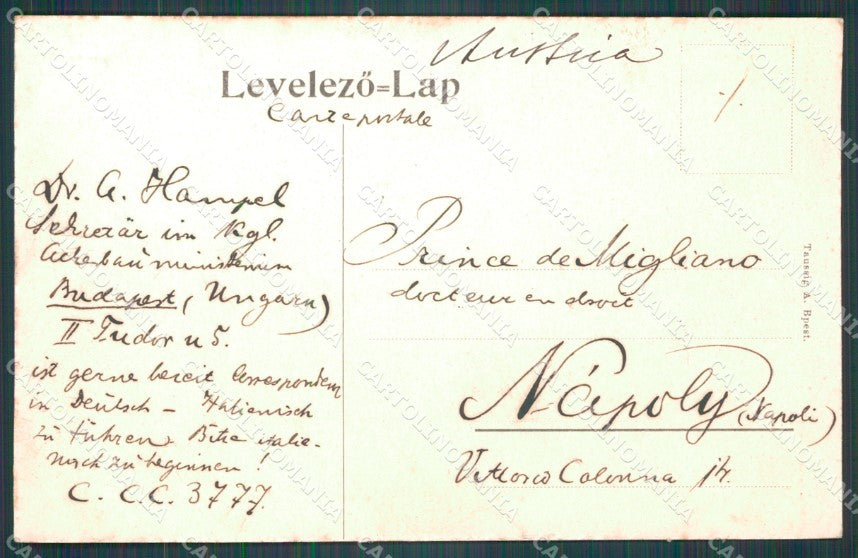 Austria
Levelező=Lap
Carte postale
Dr. A. Hampel
Sekretär im Kgl.
Ackerbauministerium
Budapest, (Ungarn)
II Tudor u 5.
ist gerne bereit Correspondenz
in Deutsch – Italienisch
zu führen. Bitte italie-
nisch zu beginnen!
C. C.C. 3777.
Prince de Migliano
docteur en droit
Nápoly (Napoli)
Vittorio Colonna 14.
Taussig A. Bpest.
CARTOLINOMANIA